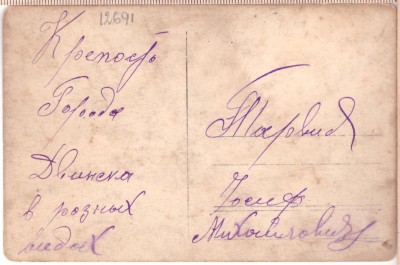 12691
Крепость
Города
Двинска
в розных
видах
Иосиф
Михайлович